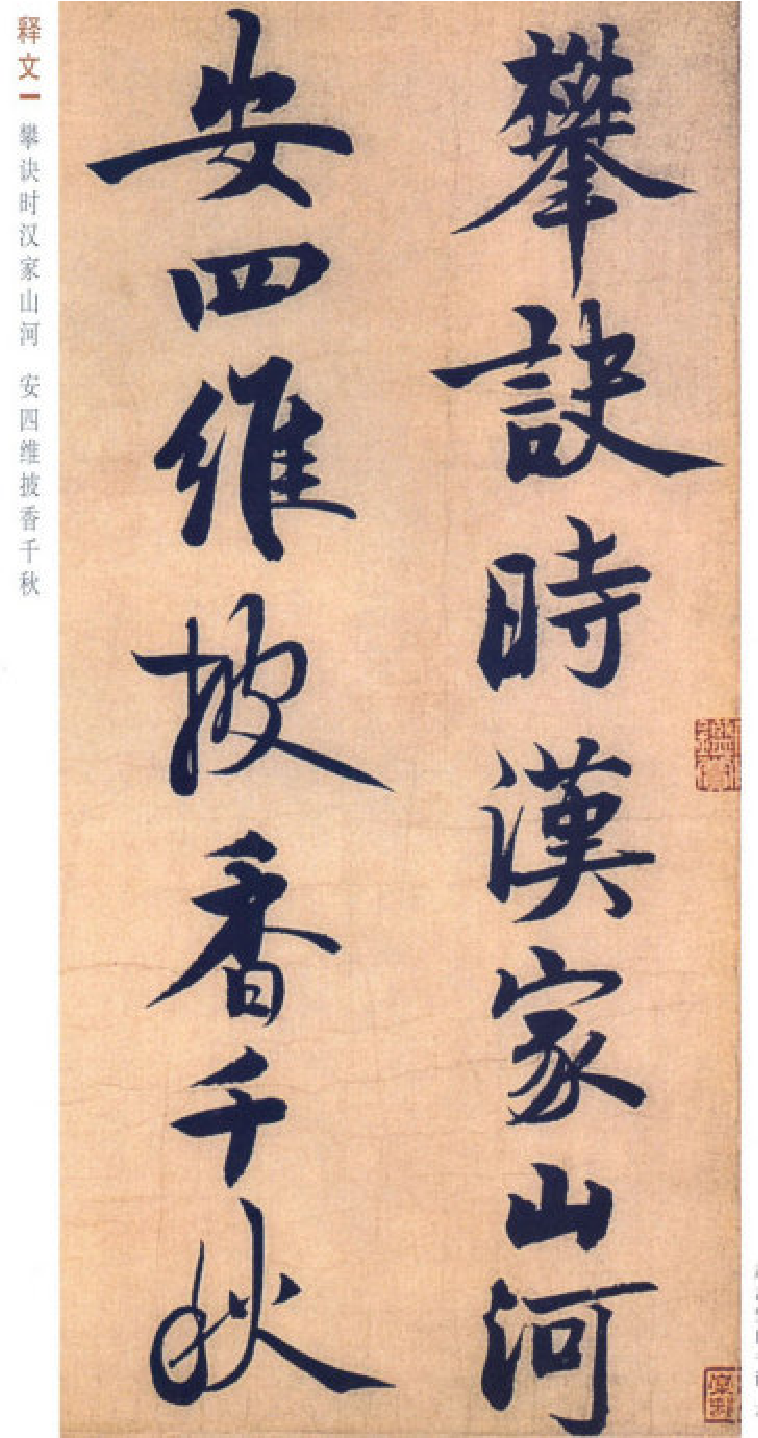 攀訣時漢家山河
安四維披香千秋
释文一 攀诀时汉家山河 安四维披香千秋